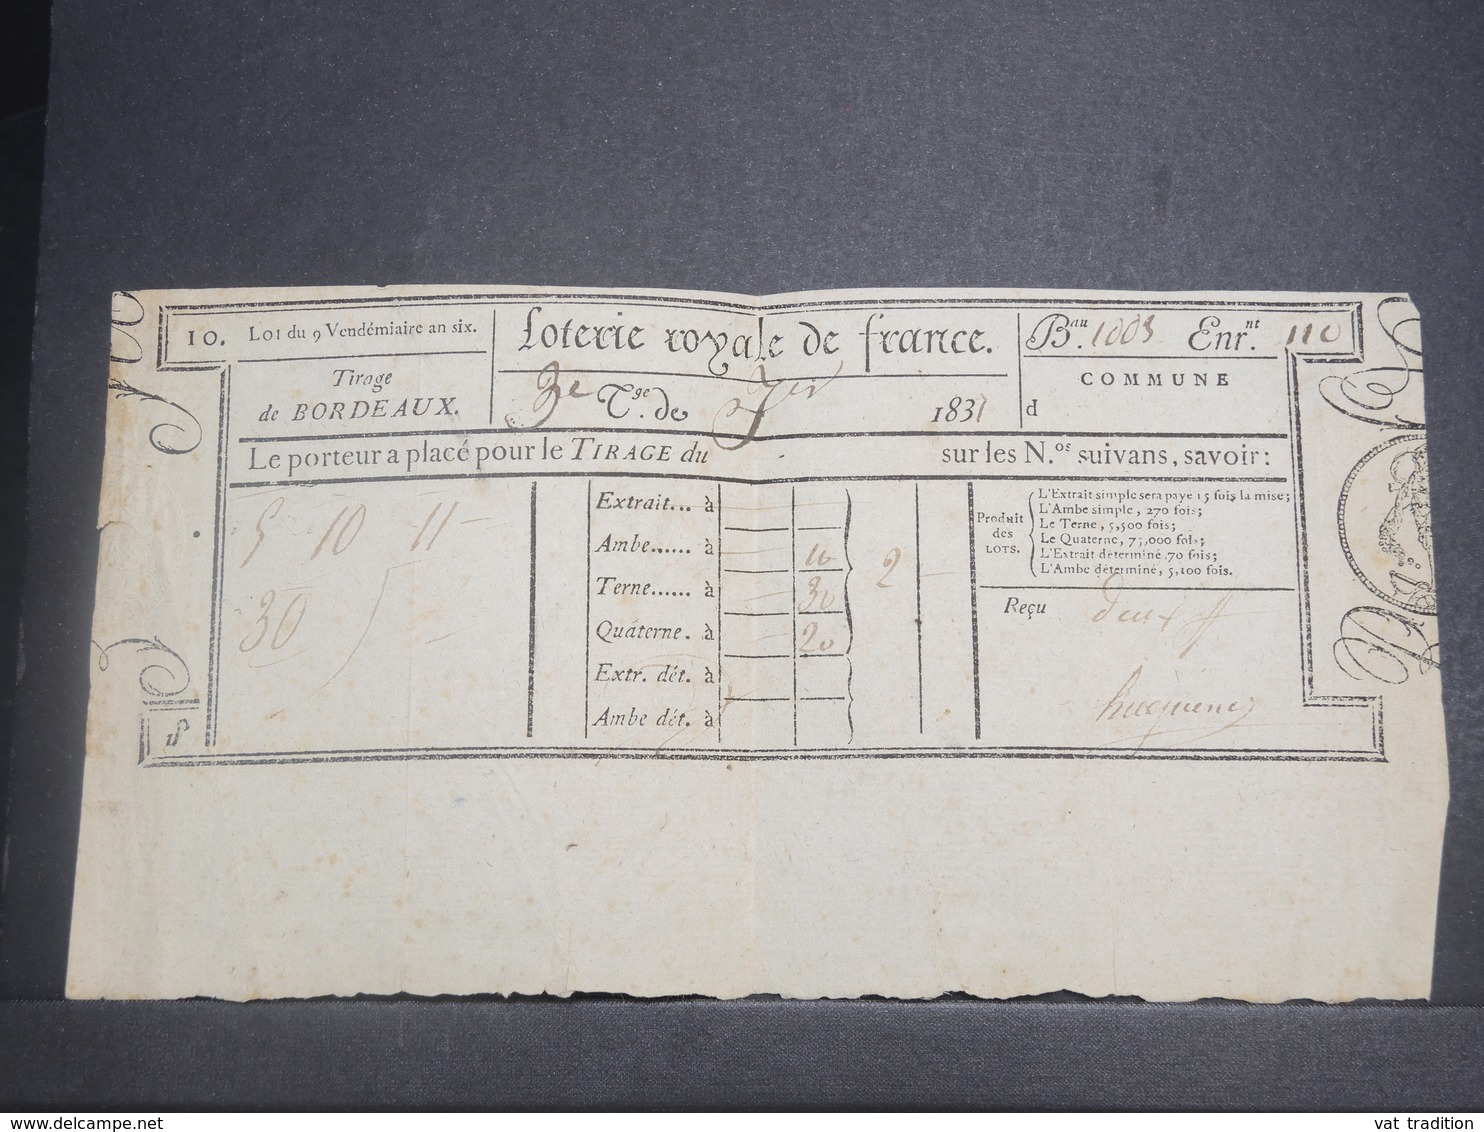 10. LOI du 9 Vendémiaire an six.
Tirage
de BORDEAUX.
Loterie royale de france.
3e T.ge de 7bre 1831
B.au 1003 Enr.nt 110
COMMUNE
d
Le porteur a placé pour le TIRAGE du sur les N.os suivans, savoir:
5 10 11
30
Extrait... à
Ambe...... à 10
Terne...... à 30
Quaterne. à 20
Extr. dét. à
Ambe dét. à
2
Produit
des
LOTS.
L'Extrait simple sera payé 15 fois la mise;
L'Ambe simple, 270 fois;
Le Terne, 5,500 fois;
Le Quaterne, 75,000 fois;
L'Extrait déterminé 70 fois;
L'Ambe déterminé, 5,100 fois.
Reçu deux ff
delcampe.net
vat tradition